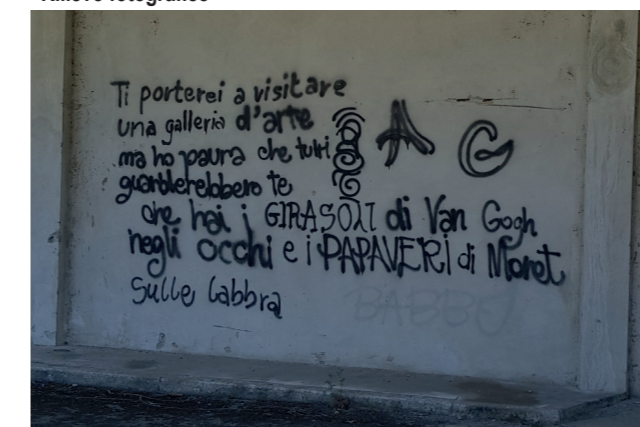 Ti porterei a visitare
una galleria d'arte
ma ho paura che tutti
guarderebbero te
che hai i GIRASOLI di Van Gogh
negli occhi e i PAPAVERI di Monet
sulle labbra
A G
BABBO